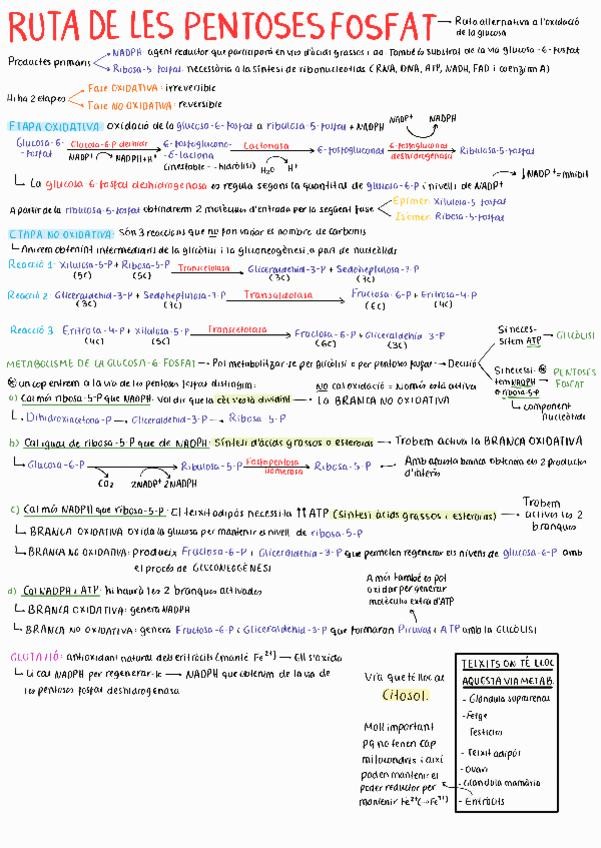 RUTA DE LES PENTOSES FOSFAT → Ruta alternativa a l'oxidació
de la glucosa
Productes primaris
NADPH: agent reductor que participarà en vies d'àcids grassos i aa. També és substrat de la via glucosa-6-fosfat
Ribosa-5-fosfat: necessària a la síntesi de ribonucleotids (RNA, DNA, ATP, NADH, FAD i coenzim A)
Hi ha 2 etapes
Fase OXIDATIVA: irreversible
Fase NO OXIDATIVA: reversible
ETAPA OXIDATIVA: oxidació de la glucosa-6-fosfat a ribulosa-5-fosfat + NADPH
NADP+ NADPH
Glucosa-6-fosfat
Glucosa-6-P deshidr
NADP+ NADPH+H+
6-fosfoglucono-
δ-lactona
(inestable → hidròlisi)
Lactonasa
H2O H+
6-fosfogluconat
6-fosfogluconat
deshidrogenasa
Ribulosa-5-P
La glucosa 6 fosfat deshidrogenasa es regula segons la quantitat de glucosa-6-P i nivell de NADP+
↓NADP+ = inhibit
A partir de la ribulosa-5-fosfat obtindrem 2 molècules d'entrada per la següent fase
Epímer: Xilulosa 5-fosfat
Isòmer: Ribosa 5-fosfat
ETAPA NO OXIDATIVA: són 3 reaccions que no fan variar el nombre de carbonis
Anirem obtenint intermediaris de la glicòlisi i la gluconeogènesi, a part de nucleòtids
Reacció 1: Xilulosa-5-P + Ribosa-5-P Transcetolasa Gliceraldehid-3-P + Sedoheptulosa-7-P
(5C) (5C) (3C) (7C)
Reacció 2: Gliceraldehid-3-P + Sedoheptulosa-7-P Transaldolasa Fructosa-6-P + Eritrosa-4-P
(3C) (7C) (6C) (4C)
Reacció 3: Eritrosa-4-P + Xilulosa-5-P Transcetolasa Fructosa-6-P + Gliceraldehid 3-P
(4C) (5C) (6C) (3C)
METABOLISME DE LA GLUCOSA-6-FOSFAT → Pot metabolitzar-se per glicòlisi o per pentoses fosfat → Decisió
Si neces-
sitem ATP → GLICÒLISI
Si necessi-
tem NADPH
o ribosa-5-P
PENTOSES
FOSFAT
component
nucleòtids
un cop entrem a la via de les pentoses fosfat distingim:
a) Cal més ribosa 5-P que NADPH. Vol dir que la cèl s'està dividint →
NO cal oxidació = Només està activa
la BRANCA NO OXIDATIVA
Dihidroxiacetona-P → Gliceraldehid-3-P → Ribosa 5-P
b) Cal igual de ribosa-5-P que de NADPH: Síntesi d'àcids grassos o esteroides → Trobem activa la BRANCA OXIDATIVA
Glucosa-6-P Ribulosa-5-P Fosfopentosa
isomerasa Ribosa 5-P
CO2 2NADP+ 2NADPH
Amb aquesta branca obtenim els 2 productes
d'interès
c) Cal més NADPH que ribosa-5-P. El teixit adipós necessita ↑↑ATP (síntesi àcids grassos i esteroides) →
Trobem
actives les 2
branques
BRANCA OXIDATIVA oxida la glucosa per mantenir el nivell de ribosa-5-P
BRANCA NO OXIDATIVA: produeix Fructosa-6-P i Gliceraldehid-3-P que permeten regenerar els nivells de glucosa-6-P amb
el procés de GLUCONEOGÈNESI
d) Cal NADPH i ATP: hi haurà les 2 branques activades
BRANCA OXIDATIVA: genera NADPH
BRANCA NO OXIDATIVA: genera Fructosa-6-P i Gliceraldehid-3-P que formaran Piruvat i ATP amb la GLICÒLISI
A més també es pot
oxidar per generar
molècules extra d'ATP
GLUTATIÓ: antioxidant natural dels eritròcits (manté Fe2+) → Ell s'oxida
Li cal NADPH per regenerar-se → NADPH que obtenim de la via de
les pentoses fosfat deshidrogenasa
Via que té lloc al
Citosol.
Molt important
pq no tenen cap
mitocondris i així
poden mantenir el
poder reductor per
mantenir Fe2+ (→Fe3+)
TEIXITS ON TÉ LLOC
AQUESTA VIA METAB.
- Glàndula suprarenal
- Fetge
Testicles
- Teixit adipós
- Ovari
- Glàndula mamària
- Eritròcits